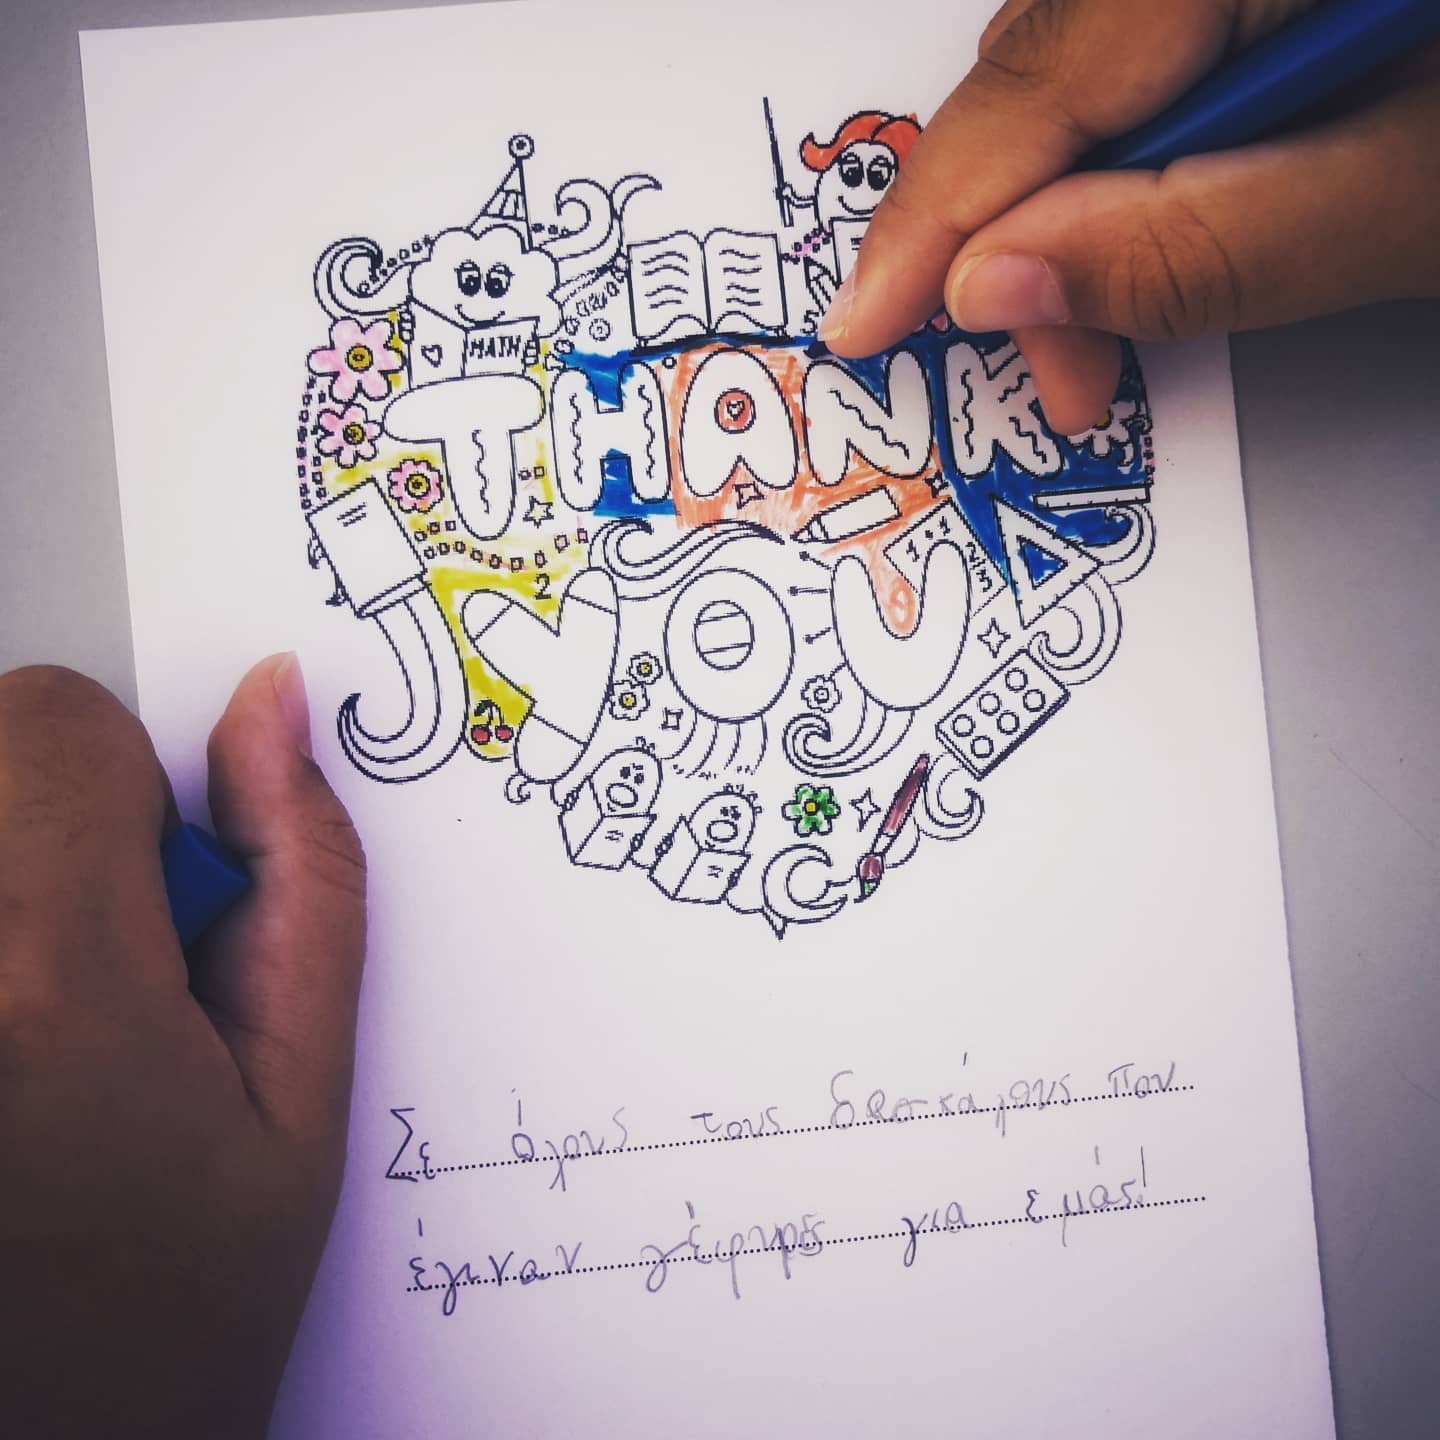 MATH
THANK
1+1
2
YOU
Σε όλους τους δασκάλους που
έγιναν γέφυρες για εμάς!